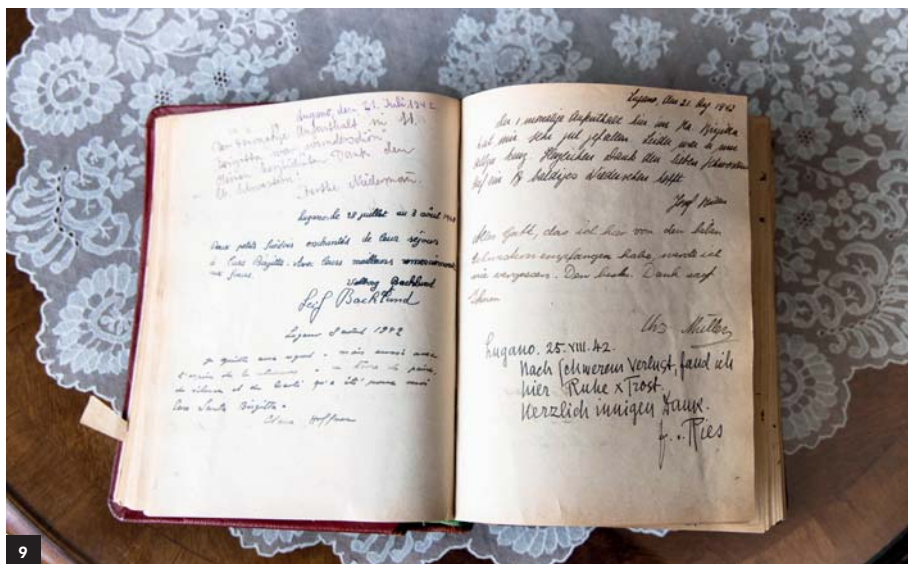 Lugano, den 21. Juli 1942.
Aufenthalt in St.
Brigitta war wunderschön
Meinen herzlichsten Dank den
lb. Schwestern.
Niedermann.
Lugano le 28 juillet au 8 août 1942
Deux petits Suédois enchantés de leur séjour
à Casa Brigitta. Avec leurs meilleurs
Backlund
Leif Backlund
Lugano 8 août 1942
Je quitte avec regret - mais aussi avec
de silence et de qu'a été pour moi
Casa Santa Brigitta.
Hoffmann
Lugano, den 21. Aug. 1942
Der 1 monatige Aufenthalt hier im Ha. Brigitta
hat mir sehr gut gefallen. Leider war er nur
allzu kurz. Herzlichen Dank den lieben Schwestern
auf ein baldiges Wiedersehen hofft
Josef Müller
Alles Gott, das ich hier von den lieben
Schwestern empfangen habe, werde ich
nie vergessen. Den besten Dank sagt
Ihnen
Müller
Lugano. 25. VIII. 42.
Nach schwerem Verlust, fand ich
hier Ruhe & Trost.
Herzlich innigen Dank.
Ries
9